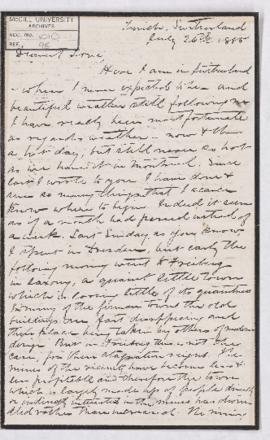 McGILL UNIVERSITY
ARCHIVES
ACC. NO. 1010
REF. 96
Zurich, Switzerland
July 26th 1885
Dearest Love
Here I am in Switzerland
- where I never expected to be - and
beautiful weather still following me
I have really been most fortunate
as regards weather - now & then
a hot day, but still never so hot
as we have it in Montreal. Since
last I wrote to you I have done &
seen so many things that I scarce
know where to begin. Indeed it seems
as if a month had passed instead of
a week. Last Sunday, as you know
I spent in Dresden but early the
following morning went to Freiberg
in Saxony, a quaint little town
which is losing little of its quaintness
In many of the German towns the old
buildings are fast disappearing and
their place being taken by others of modern
design. But in Freiberg this is not the
case, for there stagnation reigns. The
mines of the vicinity have become less &
less profitable and therefore the town
which is largely made up of people directly
or indirectly interested in the mines has
rather than increased. The mining